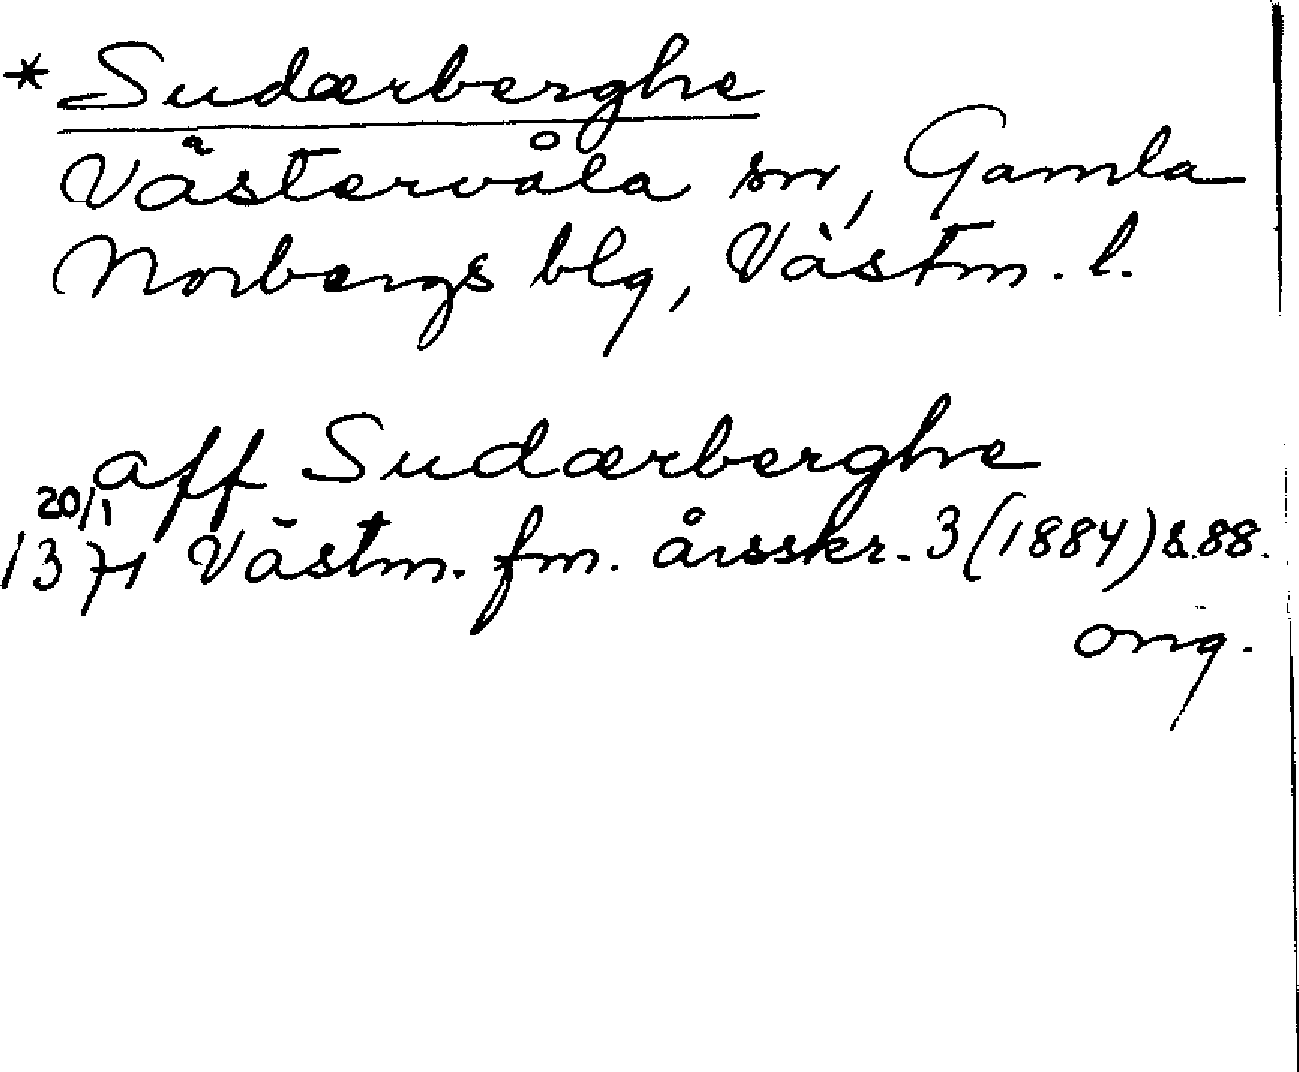 * Sudærberghe
Västervåla sn, Gamla
Norbergs blg, Västm. l.
aff Sudærberghe
20/1
1371 Västm. fm. årsskr. 3 (1884) s. 88.
orig.